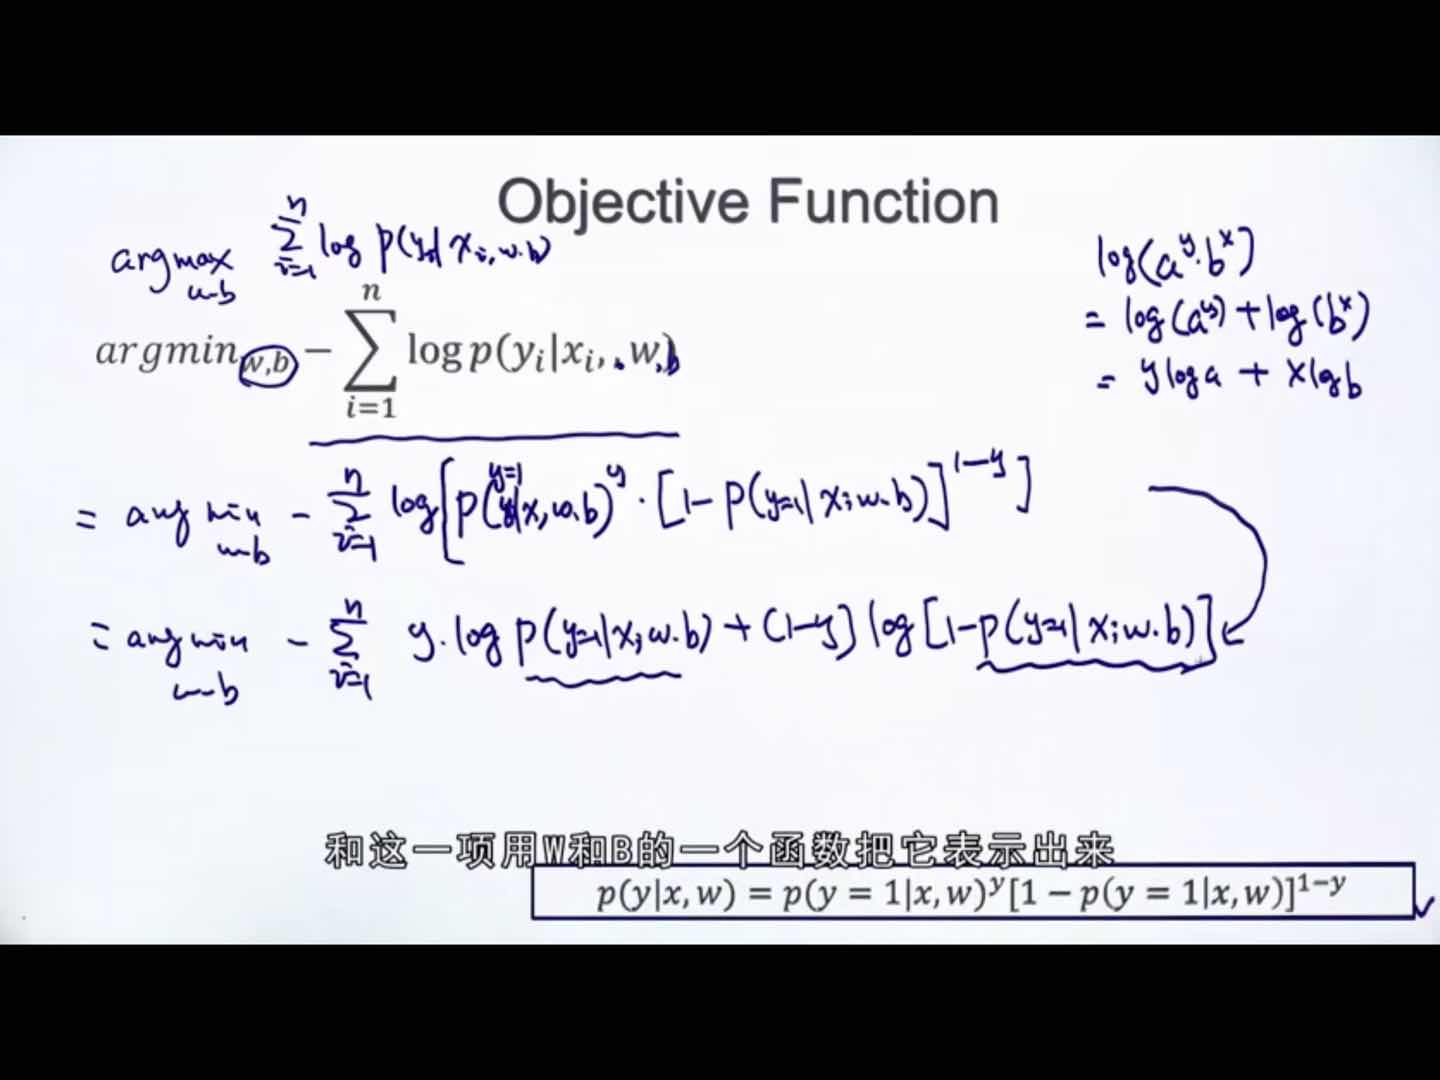 Objective Function
argmax_{w,b} \sum_{i=1}^{n} log p(y_i|x_i, w.b)
argmin_{w,b} - \sum_{i=1}^{n} log p(y_i|x_i, , w, b)
= arg min_{w.b} - \sum_{i=1}^{n} log [p(y=1|x, w.b)^y · [1-p(y=1|x;w.b)]^{1-y}]
= arg min_{w.b} - \sum_{i=1}^{n} y·log p(y=1|x;w.b) + (1-y] log [1-p(y=1|x;w.b)]
log(a^y·b^x)
= log(a^y) + log(b^x)
= y log a + x log b
和这一项用W和B的一个函数把它表示出来
p(y|x, w) = p(y = 1|x, w)^y [1 − p(y = 1|x, w)]^{1−y}